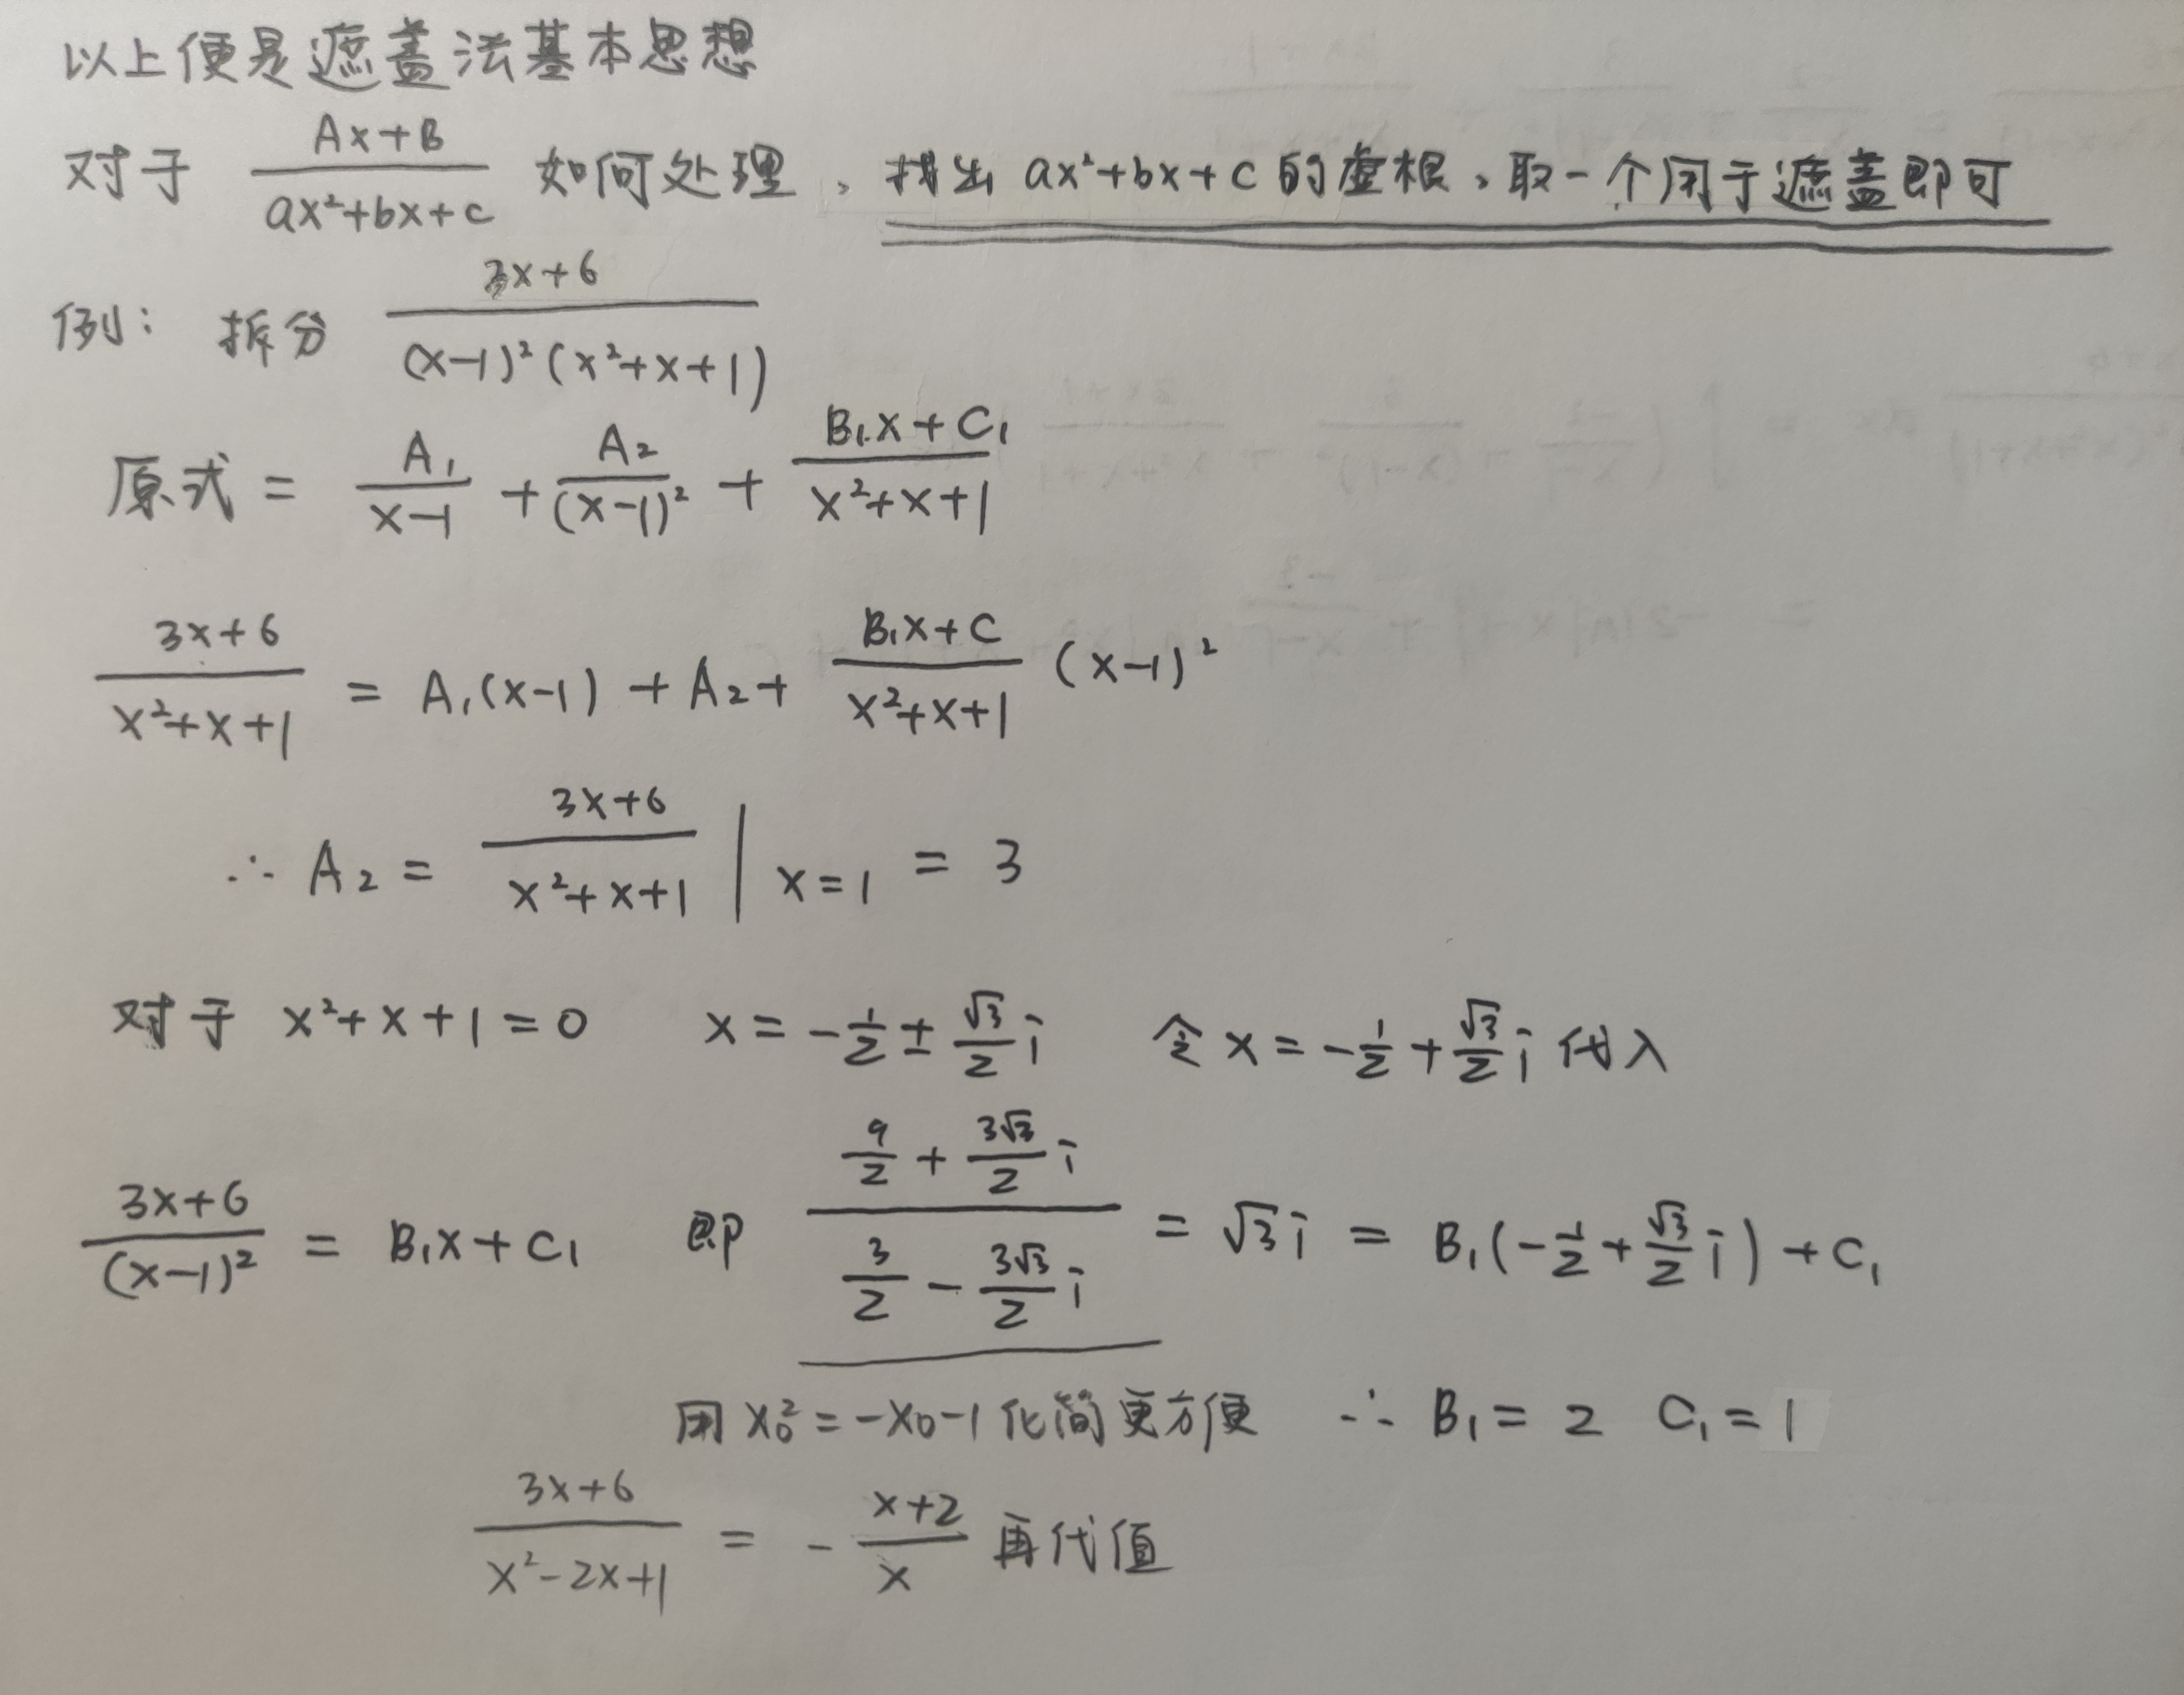 以上便是遮盖法基本思想
对于 (Ax+B)/(ax²+bx+c) 如何处理，找出 ax²+bx+c 的虚根，取一个用于遮盖即可
例： 拆分 (3x+6)/((x-1)²(x²+x+1))
原式 = A₁/(x-1) + A₂/(x-1)² + (B₁x+C₁)/(x²+x+1)
(3x+6)/(x²+x+1) = A₁(x-1) + A₂ + (B₁x+C)/(x²+x+1) (x-1)²
∴ A₂ = (3x+6)/(x²+x+1) | x=1 = 3
对于 x²+x+1=0 x = -1/2 ± √3/2 i 令 x = -1/2 + √3/2 i 代入
(3x+6)/(x-1)² = B₁x+C₁ 即 (9/2 + 3√3/2 i)/(3/2 - 3√3/2 i) = √3 i = B₁(-1/2 + √3/2 i) + C₁
用 x₀² = -x₀-1 化简更方便 ∴ B₁ = 2 C₁ = 1
(3x+6)/(x²-2x+1) = - (x+2)/x 再代值